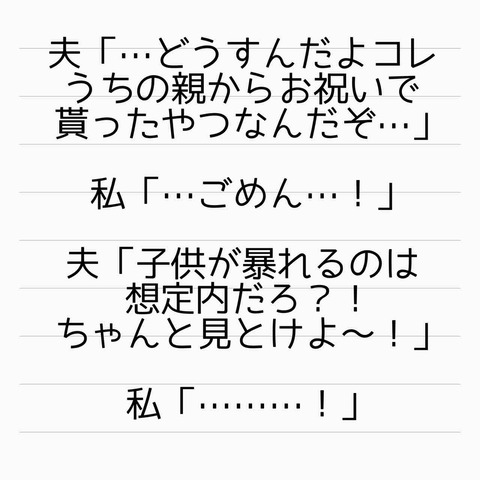 夫「…どうすんだよコレ
うちの親からお祝いで
貰ったやつなんだぞ…」
私「…ごめん…！」
夫「子供が暴れるのは
想定内だろ？！
ちゃんと見とけよ〜！」
私「………！」